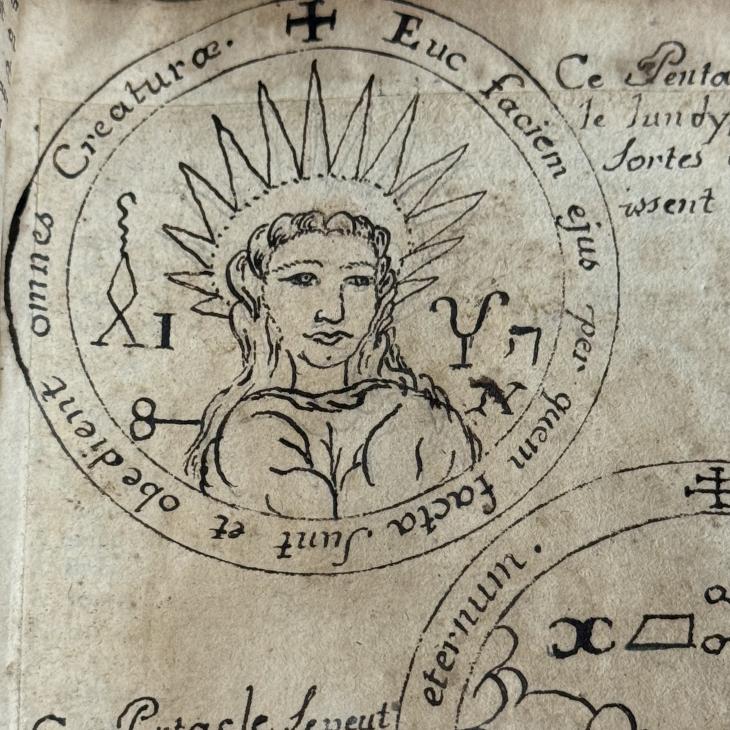 ✠ Euc faciem ejus per quem facta Sunt et obedient omnes Creaturæ.
Ce Penta
le lundy
sortes
issent
I
ה
eternum.
Pentacle se peut